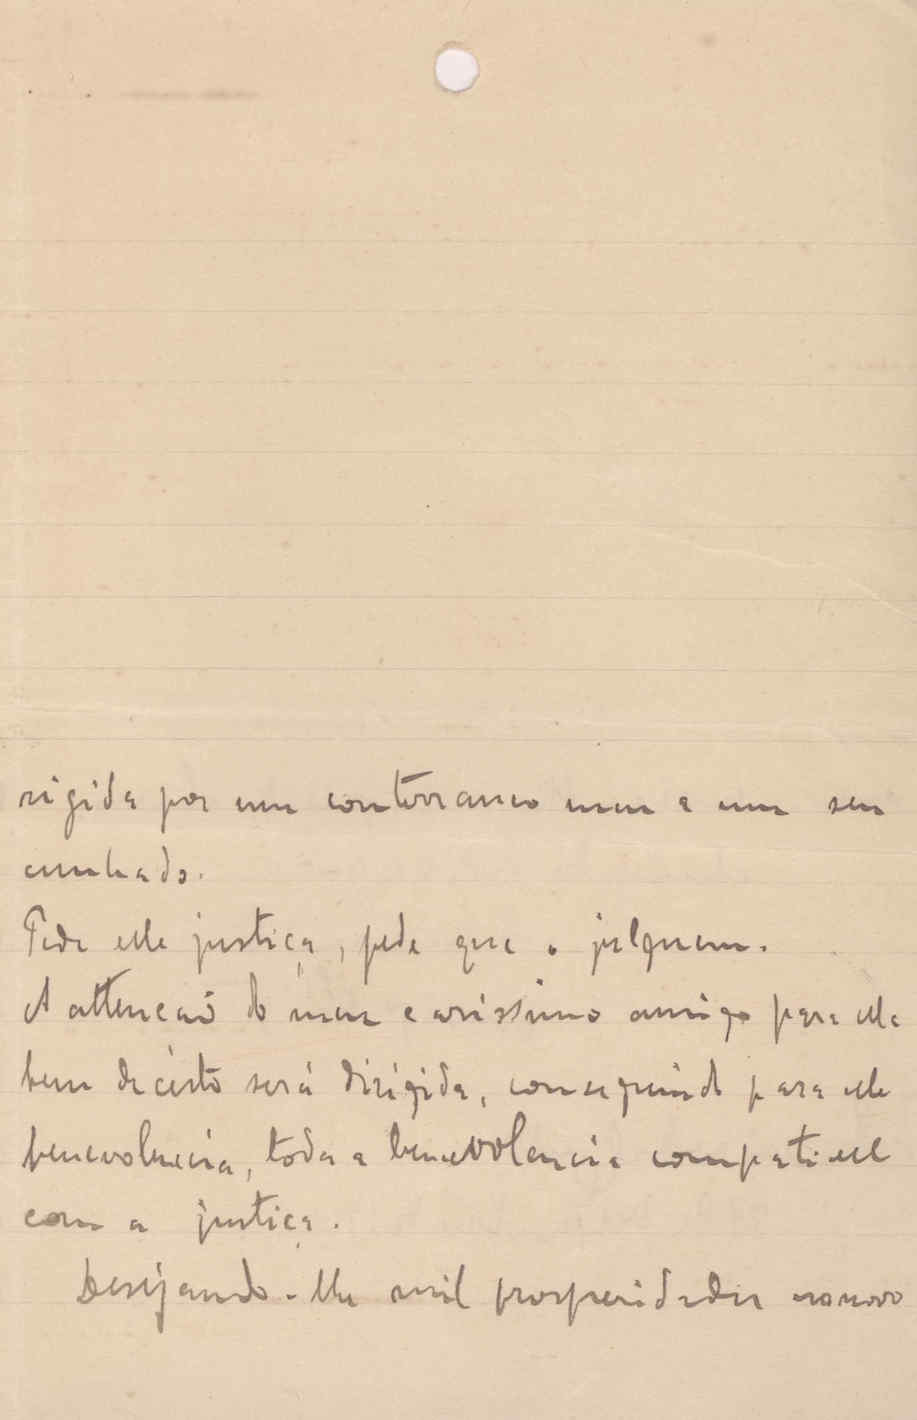 rigida por um conterraneo meu a um seu
cunhado.
Pede elle justiça, pede que o julguem.
A attenção do meu carissimo amigo para elle
bem decerto será dirigida, conseguindo para elle
benevolencia, toda a benevolencia compativel
com a justiça.
Desejando-lhe mil prosperidades no novo